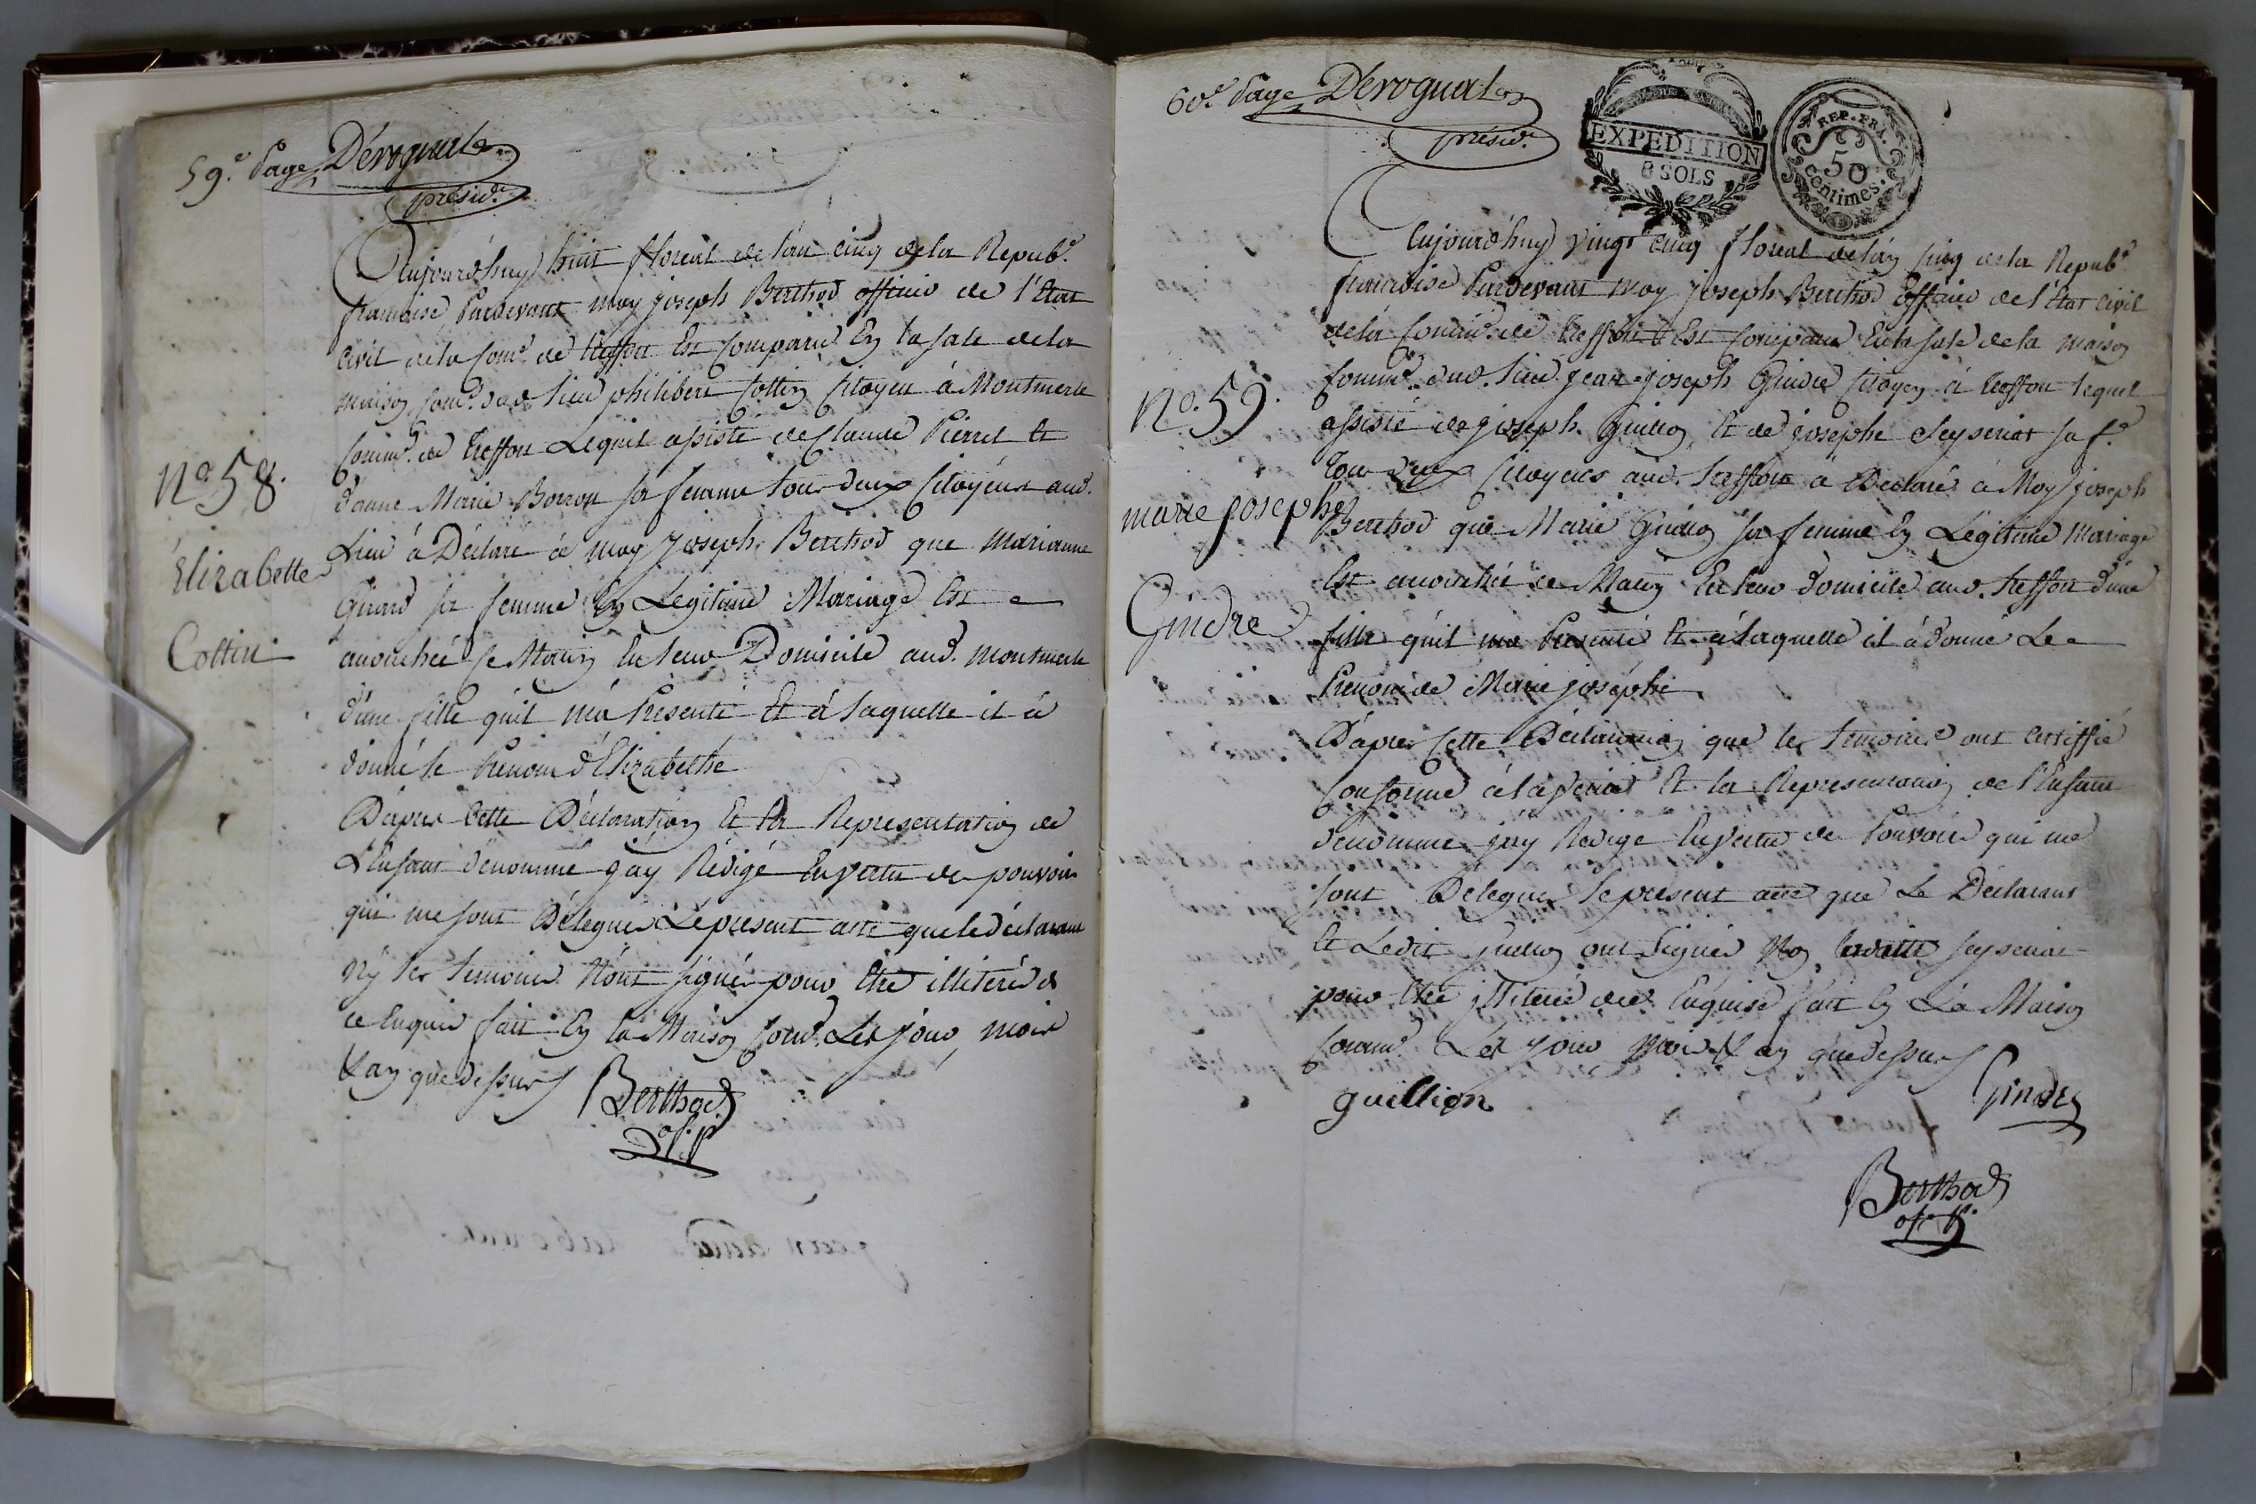 59.e Page Dérognat
présid.t
Aujourd'huy huit floreal de l'an cinq de la Repub.e
francaise Pardevant moy joseph Berthod officier de l'Etat
Civil de la Com.e de treffort Est Comparu En la sale de la
maison Com.e dud. Lieu philibert Cottin Citoyen à Montmerle
Comm.e de treffort Lequel assisté de Claude Pierrel Et
d'anne Marie Borron sa femme tous deux Citoyens aud.
N.o 58.
Lieu à Déclaré à moy joseph Berthod que marianne
Élizabette
Girard sa femme En Legitime Mariage Est
Cottin
accouchée ce Matin En leur Domicile aud. montmerle
d'une fille qu'il m'a Presenté Et à laquelle il à
donné le Prenom d'Elizabethe
D'apres Cette Déclaration Et la Representation de
L'Enfant dénommé j'ay Rédigé En vertu de pouvoirs
qui me sont Délegués Le present acte que le déclarant
Ny les temoins N'ont signé pour Etre illiteré de
ce Enquis fait En la Maison Com.e Les jour, mois
& an que dessus
Berthod
of. P.
60.e Page Dérognat
présid.t
EXPEDITION
8 SOLS
REP. FRA.
50
centimes.
Aujourd'huy vingt cinq floreal de l'an cinq de la Repub.e
francaise Pardevant moy joseph Berthod Officier de l'Etat Civil
de la Comm.e de treffort Est Comparu En la sale de la maison
Comm.e dud. Lieu jean joseph Gindre Citoyen à treffort lequel
N.o 59.
assisté de joseph Guillion Et de josephe Seysseriat sa f.e
tous deux Citoyens aud. treffort a Declaré à Moy joseph
marie josephe
Berthod que Marie Guillion sa femme En Légitime Mariage
Est accouchée ce Matin En leur domicile aud. treffort d'une
Gindre
fille qu'il m'a Presenté Et à laquelle il à donné Le
Prenom de Marie joséphe
D'apres Cette Déclaration que les temoins ont certiffié
Conforme à la verité Et la Representation de l'Enfant
denommé j'ay Redigé En vertu de Pouvoirs qui me
sont Delegués le present acte que Le Déclarant
Et Ledit Guillion ont Signé Non ladite Seysseriat
pour Etre illiteré de ce Enquise fait En La Maison
Comm.e Les jour mois & an que dessus
guillion
Gindre
Berthod
of. P.